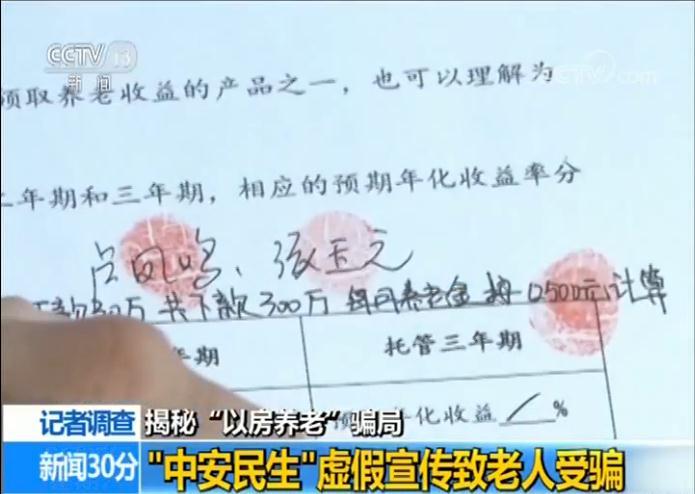 CCTV 13
新闻
CCTV.com
领取养老收益的产品之一，也可以理解为
二年期和三年期，相应的预期年化收益率分
张玉元
万 共下款300万 每月养老金 按 10500元计算
年期
托管三年期
年化收益 %
记者调查 揭秘“以房养老”骗局
新闻30分 "中安民生"虚假宣传致老人受骗